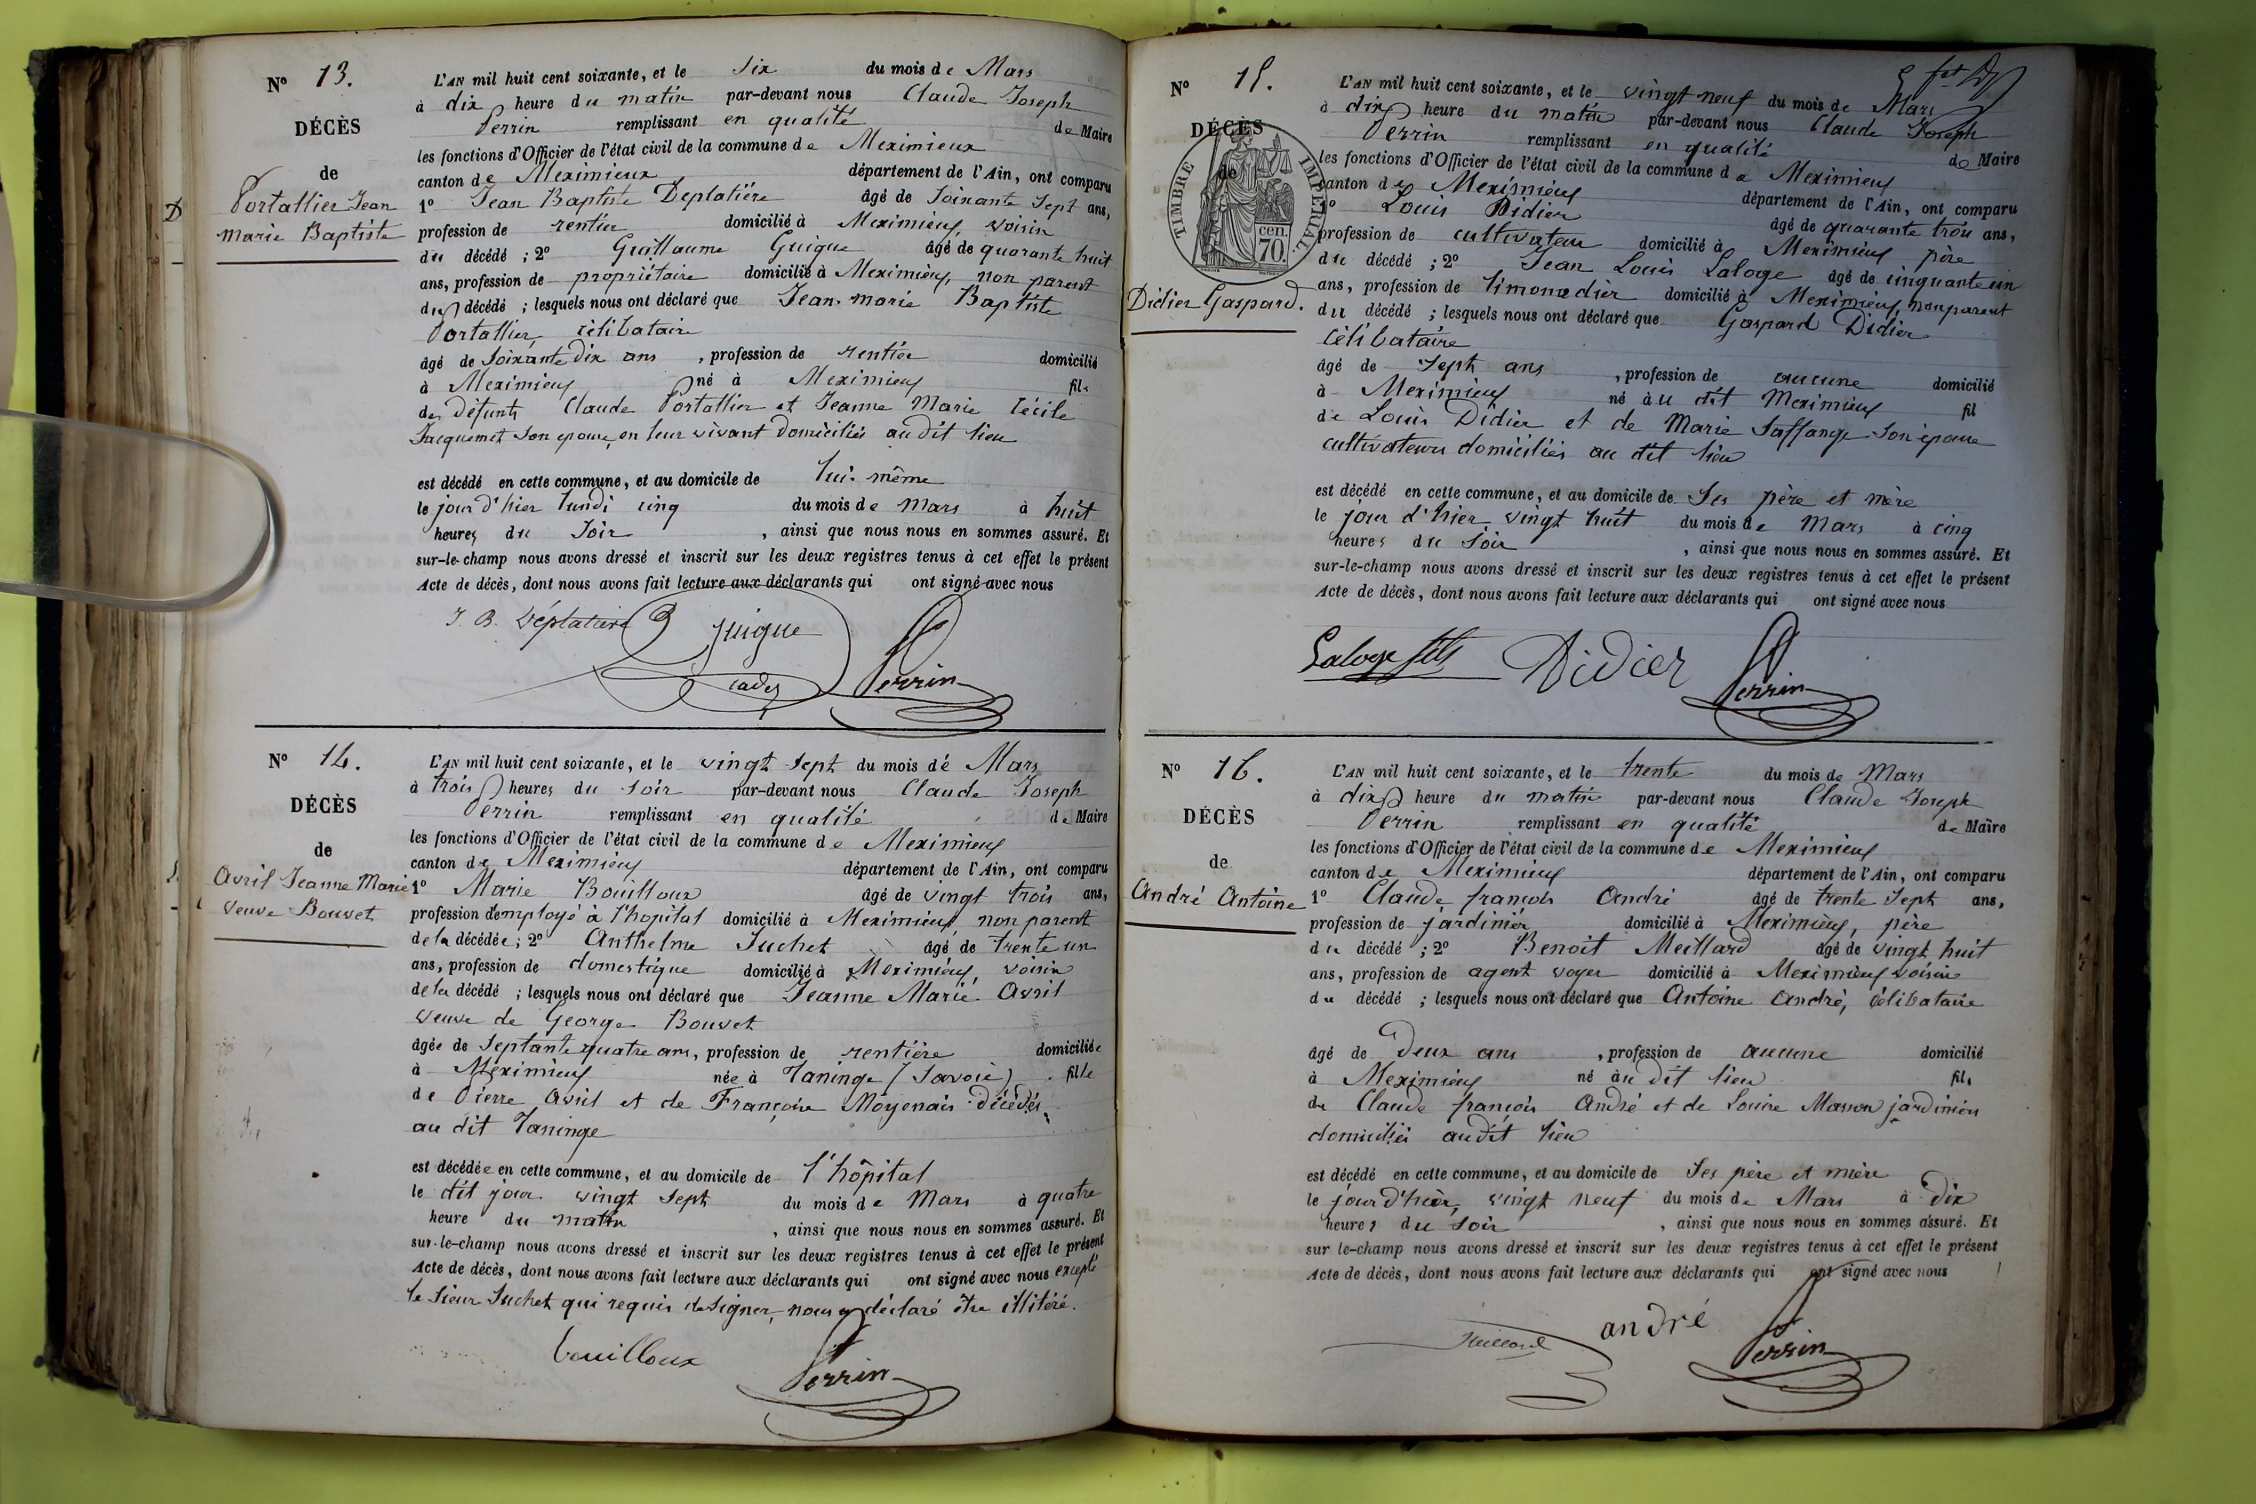 N° 13.
DÉCÈS
de
Portallier Jean
Marie Baptiste
L'AN mil huit cent soixante, et le six du mois de Mars
à dix heure du matin par-devant nous Claude Joseph
Perrin remplissant en qualité de Maire
les fonctions d'Officier de l'état civil de la commune de Meximieux
canton de Meximieux département de l'Ain, ont comparu
1° Jean Baptiste Deplatière âgé de soixante sept ans,
profession de rentier domicilié à Meximieux, voisin
du décédé ; 2° Guillaume Guigue âgé de quarante huit
ans, profession de propriétaire domicilié à Meximieux, non parent
du décédé ; lesquels nous ont déclaré que Jean-marie Baptiste
Portallier, célibataire
âgé de soixante dix ans, profession de rentier domicilié
à Meximieux né à Meximieux fils
des défunts Claude Portallier et Jeanne Marie Cécile
Jacquemet son epouse, en leur vivant domiciliés au dit lieu
est décédé en cette commune, et au domicile de lui-même
le jour d'hier lundi cinq du mois de mars à huit
heures du soir, ainsi que nous nous en sommes assuré. Et
sur-le-champ nous avons dressé et inscrit sur les deux registres tenus à cet effet le présent
Acte de décès, dont nous avons fait lecture aux déclarants qui ont signé avec nous
J. B. Déplatière Guigue
Perrin
N° 14.
DÉCÈS
de
Avril Jeanne Marie
veuve Bouvet
L'AN mil huit cent soixante, et le vingt sept du mois de Mars
à trois heures du soir par-devant nous Claude Joseph
Perrin remplissant en qualité de Maire
les fonctions d'Officier de l'état civil de la commune de Meximieux
canton de Meximieux département de l'Ain, ont comparu
1° Marie Bouilloux âgé de vingt trois ans,
profession d'employé à l'hopital domicilié à Meximieux, non parent
de la décédée ; 2° Anthelme Suchet âgé de trente un
ans, profession de domestique domicilié à Meximieux, voisin
de la décédé ; lesquels nous ont déclaré que Jeanne Marie Avril
veuve de George Bouvet
âgée de septante quatre ans, profession de rentière domiciliée
à Meximieux née à Taninge (Savoie) fille
de Pierre Avril et de Françoise Moyenais décédés
au dit Taninge
est décédée en cette commune, et au domicile de l'hôpital
le dit jour vingt sept du mois de Mars à quatre
heure du matin, ainsi que nous nous en sommes assuré. Et
sur-le-champ nous avons dressé et inscrit sur les deux registres tenus à cet effet le présent
Acte de décès, dont nous avons fait lecture aux déclarants qui ont signé avec nous excepté
le sieur Suchet qui requis de signer, nous a déclaré être illitéré.
bouilloux
Perrin
N° 15.
DÉCÈS
de
TIMBRE IMPÉRIAL
70. cen.
Didier Gaspard.
L'AN mil huit cent soixante, et le vingt neuf du mois de Mars
à dix heure du matin par-devant nous Claude Joseph
Perrin remplissant en qualité de Maire
les fonctions d'Officier de l'état civil de la commune de Meximieux
canton de Meximieux département de l'Ain, ont comparu
1° Louis Didier âgé de quarante trois ans,
profession de cultivateur domicilié à Meximieux père
du décédé ; 2° Jean Louis Laloge âgé de cinquante un
ans, profession de limonadier domicilié à Meximieux, non parent
du décédé ; lesquels nous ont déclaré que Gaspard Didier
célibataire
âgé de sept ans, profession de aucune domicilié
à Meximieux né au dit Meximieux fil
de Louis Didier et de Marie Saffange son épouse
cultivateurs domiciliés au dit lieu
est décédé en cette commune, et au domicile de ses père et mère
le jour d'hier vingt huit du mois de Mars à cinq
heures du soir, ainsi que nous nous en sommes assuré. Et
sur-le-champ nous avons dressé et inscrit sur les deux registres tenus à cet effet le présent
Acte de décès, dont nous avons fait lecture aux déclarants qui ont signé avec nous
Laloge fils Didier Perrin
N° 16.
DÉCÈS
de
André Antoine
L'AN mil huit cent soixante, et le trente du mois de Mars
à dix heure du matin par-devant nous Claude Joseph
Perrin remplissant en qualité de Maire
les fonctions d'Officier de l'état civil de la commune de Meximieux
canton de Meximieux département de l'Ain, ont comparu
1° Claude françois André âgé de trente sept ans,
profession de jardinier domicilié à Meximieux, père
du décédé ; 2° Benoit Meillard âgé de vingt huit
ans, profession de agent voyer domicilié à Meximieux voisin
du décédé ; lesquels nous ont déclaré que Antoine André, célibataire
âgé de Deux ans, profession de aucune domicilié
à Meximieux né au dit lieu fils
de Claude françois André et de Louise Masson jardiniers
domiciliés au dit lieu
est décédé en cette commune, et au domicile de ses père et mère
le jour d'hier, vingt neuf du mois de Mars à Dix
heures du soir, ainsi que nous nous en sommes assuré. Et
sur le-champ nous avons dressé et inscrit sur les deux registres tenus à cet effet le présent
Acte de décès, dont nous avons fait lecture aux déclarants qui ont signé avec nous
Meillard andré Perrin